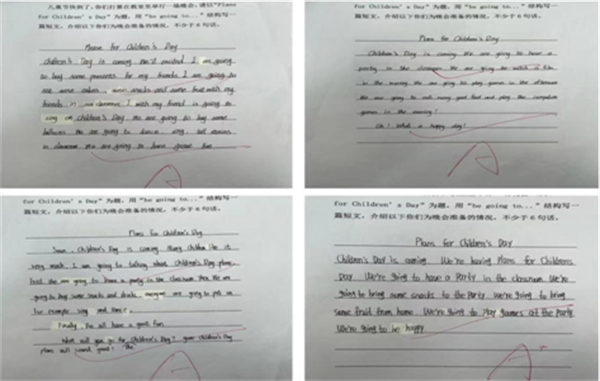 儿童节快到了,你们打算在教室里举行一场晚会,请以"Plans
for Children's Day"为题,用"be going to..."结构写一
篇短文,介绍以下你们为晚会准备的情况,不少于6句话。
for Children's Day
Children's Day is coming. I am going
to buy some presents for my friends. I am going to
some snacks and some fruit with my
friends in our classroom. I with my friend is going to
sing on children's Day. We are going to buy some
balloons. We are going to dance, sing, tell stories
in classroom. We are going to have great fun.
A
for Children's Day"为题,用"be going to..."结构写一
篇短文,介绍以下你们为晚会准备的情况,不少于6句话。
Plans for Children's Day
Children's Day is coming. We are going to have a
party in the classroom. We are going to watch a film
in the morning. We are going to play games in the afternoon.
We are going to eat many good food and play the computer
games in the evening!
Oh! What a happy day!
A
for Children's Day"为题,用"be going to..."结构写一
篇短文,介绍以下你们为晚会准备的情况,不少于6句话。
Plans for Children's Day
Soon, Children's Day is coming. Many children like it
very much. I am going to talking about Children's Day plans.
First We are going to have a party in the classroom. Then We are
going to buy some snacks and drinks. are going to put on
for example sing and dance.
Finally, We all have a good fun.
What will you go for Children's Day? your children's Day
plans will great! The
A
for Children's Day"为题,用"be going to..."结构写一
篇短文,介绍以下你们为晚会准备的情况,不少于6句话。
Plans for Children's Day
Children's Day is coming. We're having Plans for Childrens
Day. We're going to have a Party in the classroom. We're
going to bring some snacks to the Party. We're going to bring
some fruit from home. We're going to play games at the Party.
We're going to be happy.
A+